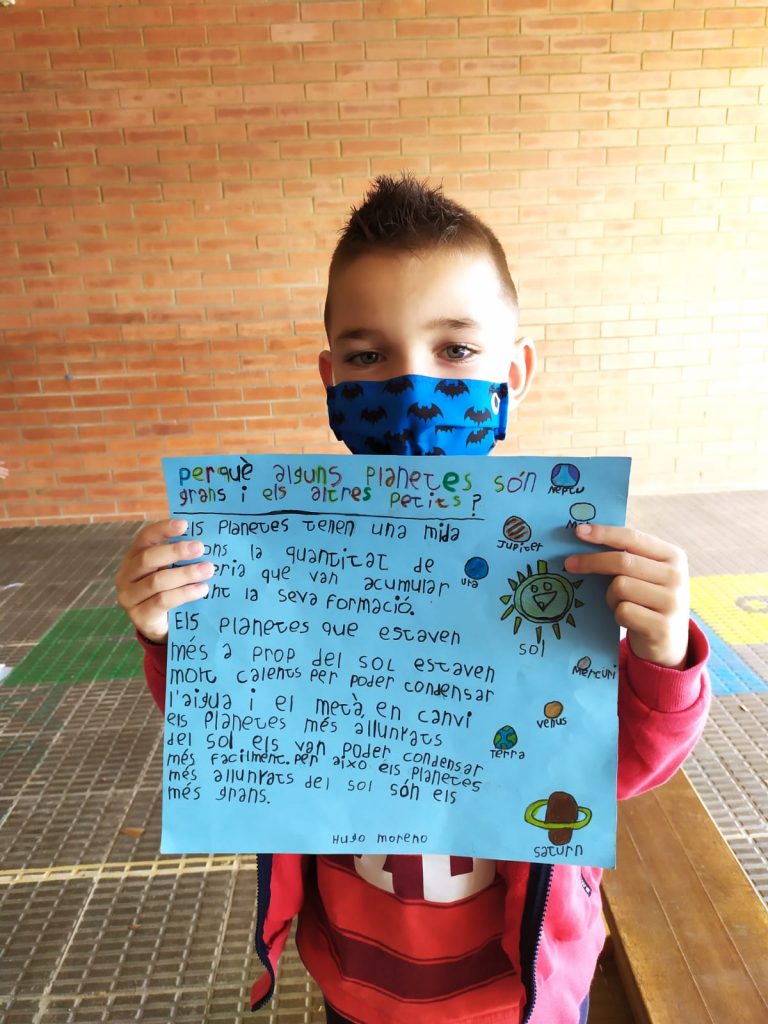 perquè alguns planetes són
grans i els altres petits?
Els planetes tenen una mida
la quantitat de
que van acumular
la seva formació.
Els planetes que estaven
més a prop del sol estaven
molt calents per poder condensar
l'aigua i el metà, en canvi
els planetes més allunyats
del sol els van poder condensar
més facilment. per això els planetes
més allunyats del sol són els
més grans.
Hugo moreno
Neptu
Jupiter
Ura
sol
Mercuri
venus
Terra
saturn